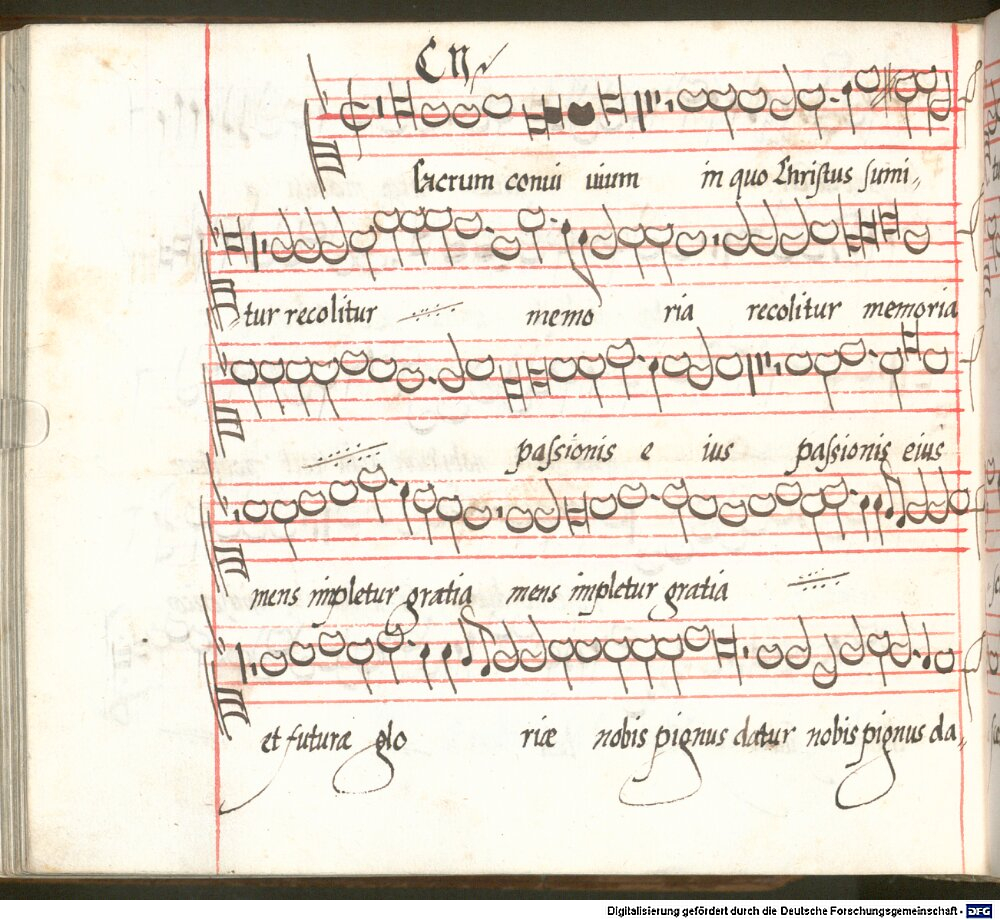 O
sacrum conui uium in quo Christus sumi„
tur recolitur memo ria recolitur memoria
passionis e ius passionis eius
mens impletur gratia mens impletur gratia
et futuræ glo riæ nobis pignus datur nobis pignus da„
Digitalisierung gefördert durch die Deutsche Forschungsgemeinschaft - DFG